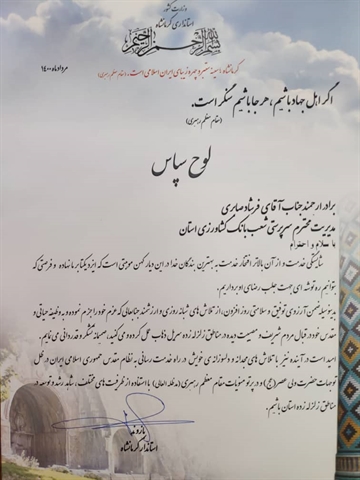 وزارت کشور
استانداری کرمانشاه
بسم الله الرحمن الرحیم
مرداد ماه ۱۴۰۰
کرمانشاه، سینه ستبر و چهره زیبای ایران اسلامی است. (مقام معظم رهبری)
اگر اهل جهاد باشیم، هر جا باشیم سنگر است.
(مقام معظم رهبری)
لوح سپاس
برادر ارجمند جناب آقای فرشاد صابری
مدیریت محترم سرپرستی شعب بانک کشاورزی استان
با سلام و احترام
شایستگی خدمت و از آن بالاتر افتخار خدمت به بهترین بندگان خدا در این دیار کهن موهبتی است که ایزد یکتا بر ما نهاده و فرصتی که
توانیم ره توشه ای جهت جلب رضای او برداریم.
بدینوسیله ضمن آرزوی توفیق و سلامتی روزافزون، از تلاش های شبانه روزی و ارزشمند جنابعالی که عزم خود را جزم نموده و به وظیفه حیاتی و
مقدس خود در قبال مردم شریف و مصیبت دیده در مناطق زلزله زده سرپل ذهاب عمل کرده و می کنید، صمیمانه تشکر و قدردانی می نمایم.
امید است در آینده نیز با تلاش های مجدانه و دلسوزانه ی خویش در راه خدمت رسانی به نظام مقدس جمهوری اسلامی ایران در ظل
توجهات حضرت ولی عصر (عج) و در پرتو منویات مقام معظم رهبری (مدظله العالی) با استفاده از ظرفیت های مختلف، شاهد رشد و توسعه در
مناطق زلزله زده استان باشیم.
بازوند
استاندار کرمانشاه